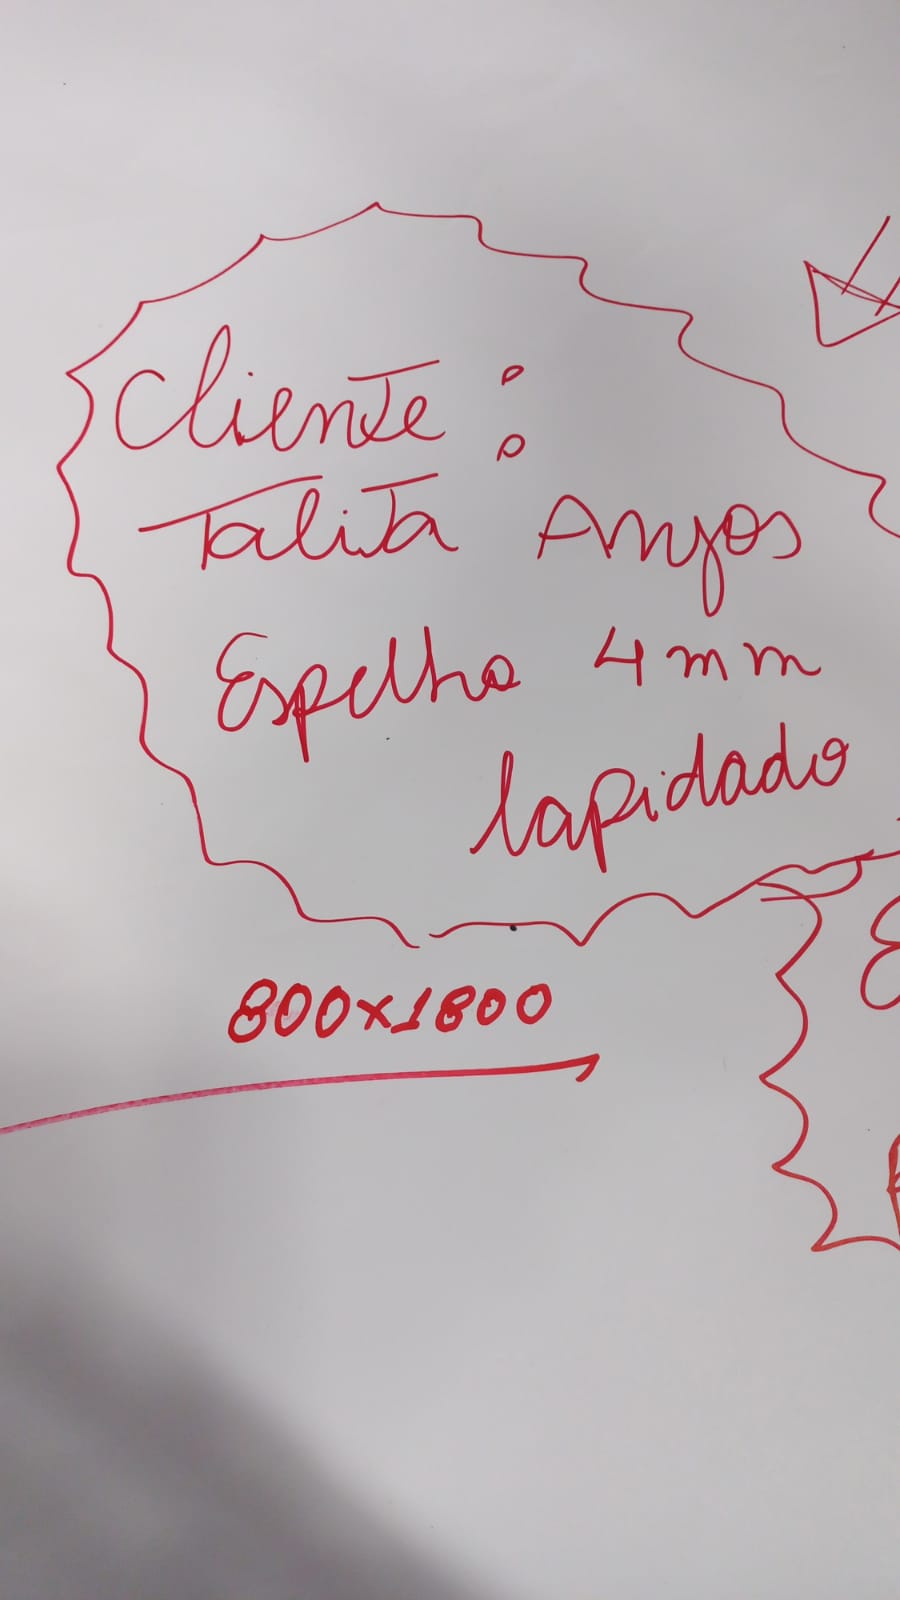 Cliente:
Talita Anjos
Espelho 4mm
lapidado
800x1800